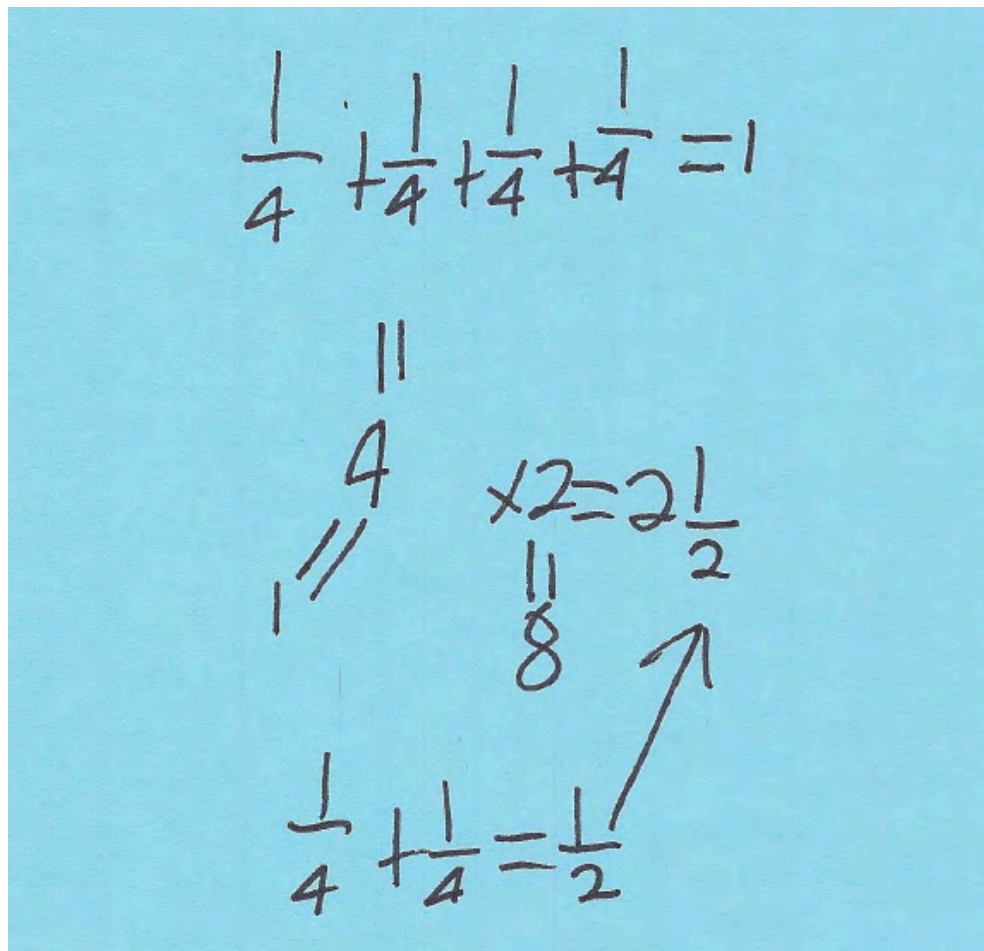 1/4 + 1/4 + 1/4 + 1/4 = 1
||
4
//
1
x2 = 2 1/2
||
8
1/4 + 1/4 = 1/2